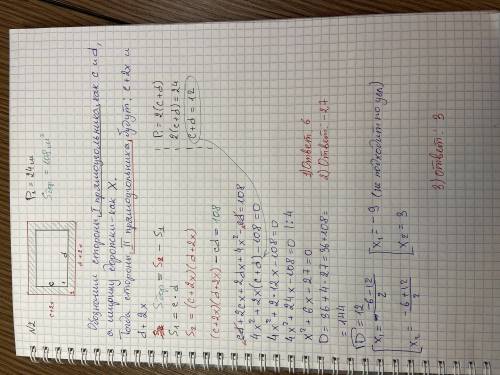 N2
c+2x
c
d
x
d+2x
P₁ = 24 м
Sдор = 108 м²
Обозначим стороны I прямоугольника, как c и d,
а ширину дорожки - как X.
Тогда стороны II прямоугольника, будут: c+2x и
d+2x
Sдор = S₂ - S₁
S₁ = c·d
S₂ = (c+2x)(d+2x)
(c+2x)(d+2x) - cd = 108
P₁ = 2(c+d)
2(c+d) = 24
c+d = 12
cd + 2cx + 2dx + 4x² - cd = 108
4x² + 2x(c+d) - 108 = 0
4x² + 2·12x - 108 = 0
4x² + 24x - 108 = 0 |:4
x² + 6x - 27 = 0
D = 36 + 4·27 = 36 + 108 =
= 144
√D = 12
x₁ = -6-12/2
x₂ = -6+12/2
x₁ = -9 (не подходит по усл)
x₂ = 3
1) Ответ: 6
2) Ответ: -27
3) Ответ: 3